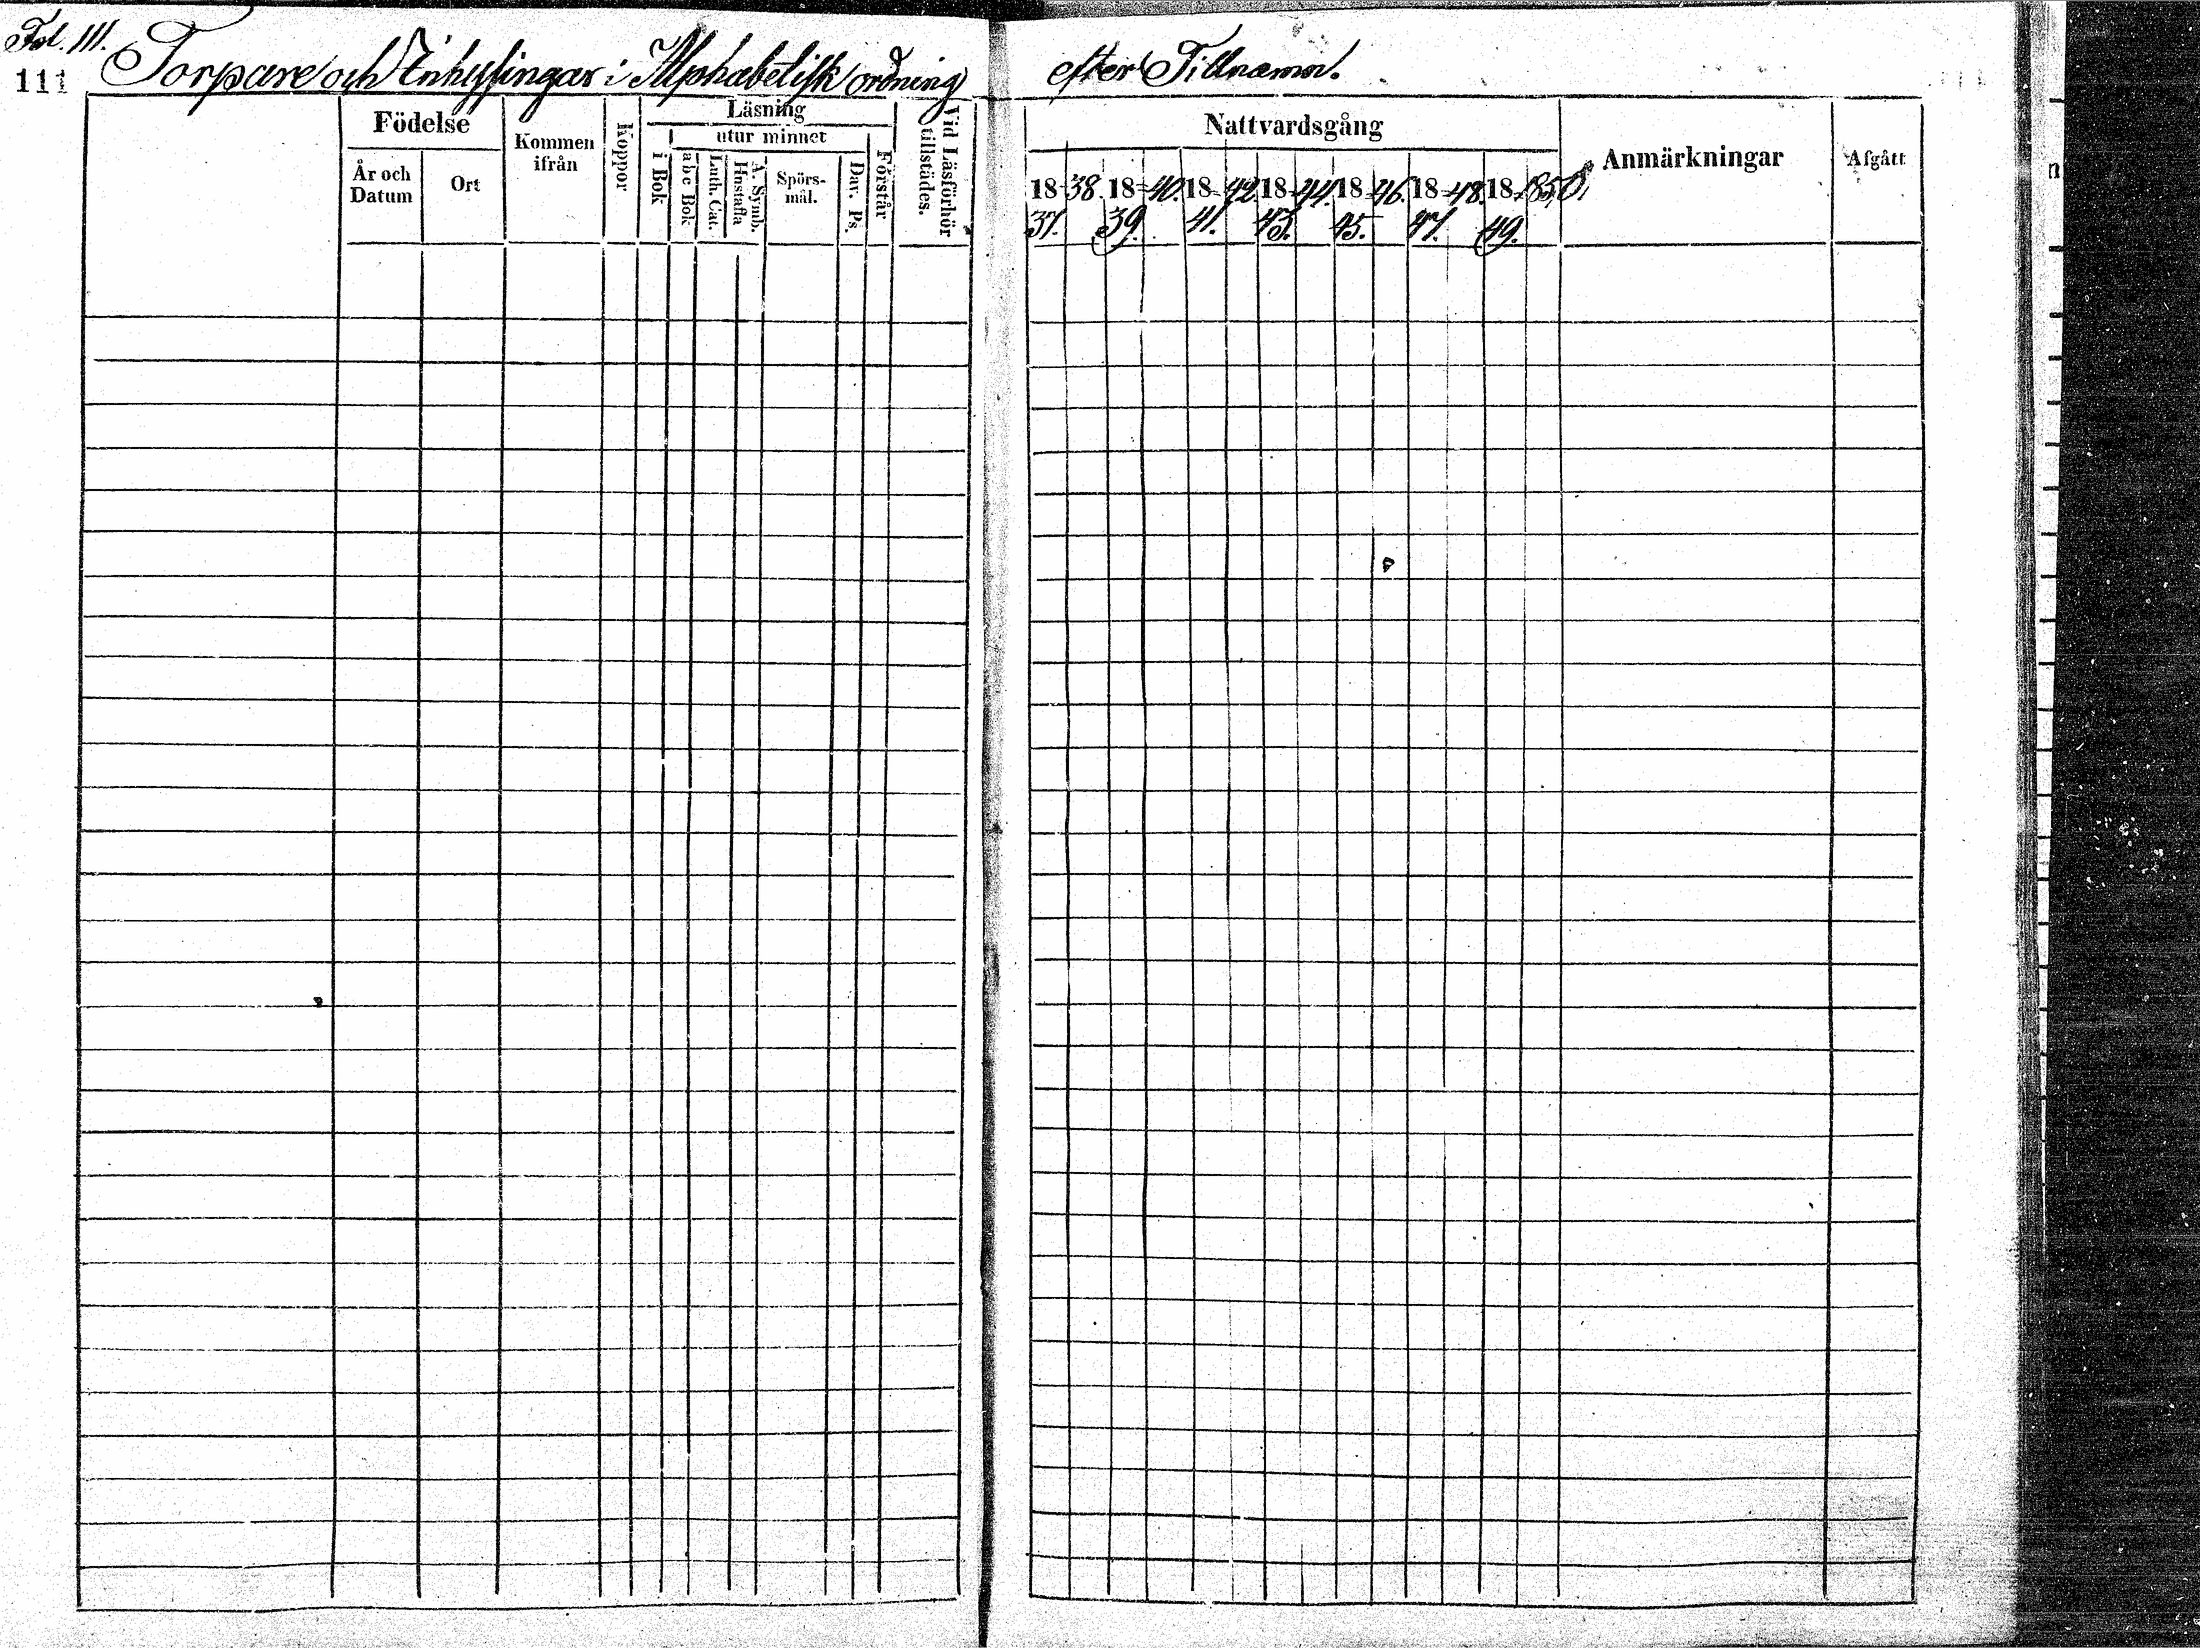 Fol. 111.
111
Torpare och Inhysingar i Alphabetisk ordning efter Tillnamn.
Födelse
År och Datum
Ort
Kommen ifrån
Koppor
Läsning
utur minnet
i Bok
abc Bok
Luth. Cat.
Hustafla
A. Symb.
Spörs-
mål.
Dav. Ps.
Förstår
Vid Läsförhör
tillstädes.
Nattvardsgång
18 38. 18 40. 18 42. 18 44. 18 46. 18 48. 18 1850.
37. 39. 41. 43. 45. 47. 49.
Anmärkningar
Afgått